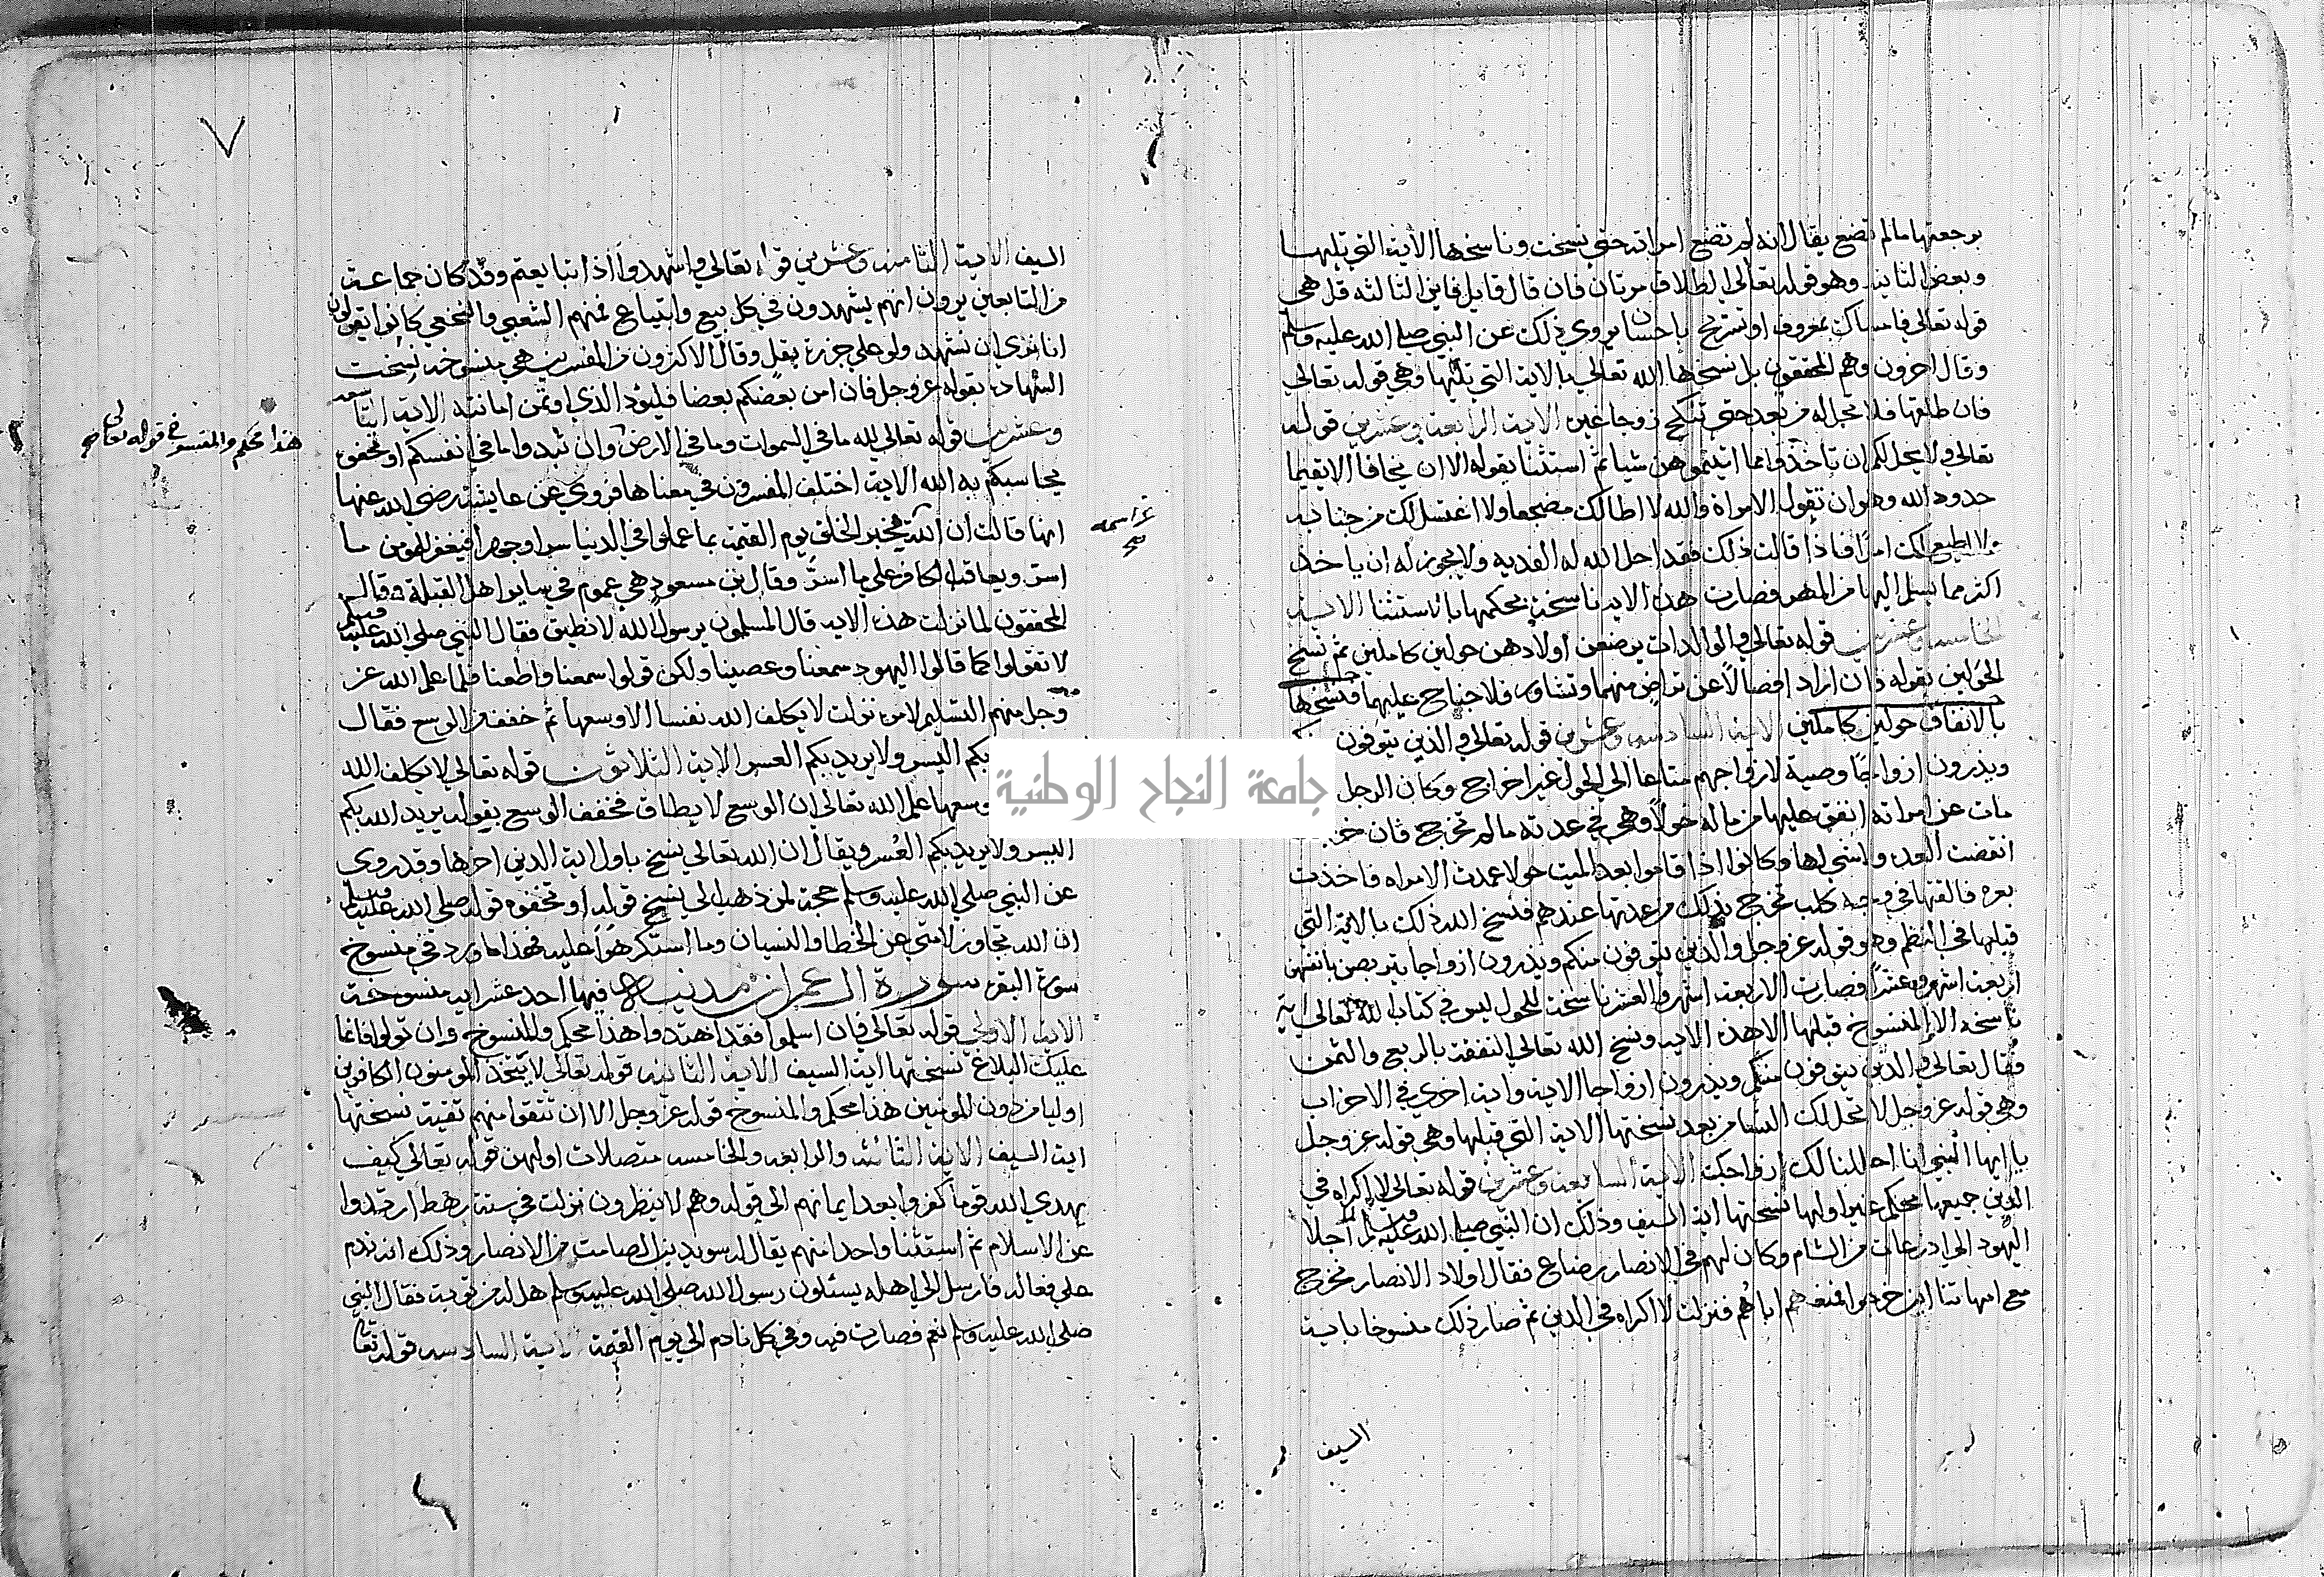 برجعتها مالم تضع يقال انه لم تضع امراته حتي نسخت وناسخها الآية التي تليها
وبعض الثانية وهو قوله تعالي الطلاق مرتان فان قال قايل فاين الثالثه قل هي
قوله تعالي فامساك بمعروف او تسريح باحسان يروي ذلك عن النبي صلي الله عليه وسلم
وقال اخرون وهم المحققون بل نسخها الله تعالي بالاية التي تليها وهي قوله تعالي
فان طلقها فلا تحل له من بعد حتي تنكح زوجا غيره الاية الرابعة وعشرين قوله
تعالي ولا يحل لكم ان تأخذوا مما اتيتموهن شيا ثم استثنا بقوله الا ان يخافا الا يقيما
حدود الله وهو ان تقول الامراة والله لا اطا لك مضجعا ولا اغتسل لك من جنابه
ولا اطيع لك امرا فاذا قالت ذلك فقد احل الله له الفديه ولا يجوز له ان ياخذ
اكثر مما يسلم اليها من المهر فصارت هذه الايه ناسخة بحكمها بالاستثنا الاية
الخامسه وعشرين قوله تعالي والوالدات يرضعن اولادهن حولين كاملين ثم نسخ
الحولين بقوله فان ارادا فصالا عن تراض منهما وتشاور فلا جناح عليهما فنسخها
بالاتفاق حولين كاملين الاية السادسه وعشرين قوله تعالي والذين يتوفون
ويذرون ازواجا وصية لازواجهم متاعا الي الحول غير اخراج وكان الرجل
مات عن امراته انفق عليها من ماله حولا وهي في عدته مالم تخرج فان
انقضت العده ولا شي لها وكانوا اذا قاموا بعد الميت حولا عمدت الامراه فاخذت
بعره فالقتها في وجه كلب تخرج بذلك من عدتها عندهم فنسخ الله ذلك بالاية التي
قبلها في النظم وهو قوله عز وجل والذين يتوفون منكم ويذرون ازواجا يتربصن بانفسهن
اربعة اشهر وعشرا فصارت الاربعة اشهر والعشر ناسخة للحول ليس في كتاب الله تعالي اية
ناسخه الا المنسوخ قبلها الا هذه الايه ونسخ الله تعالي النفقة بالربع والثمن
فقال تعالي والذين يتوفون منكم ويذرون ازواجا الاية واية اخري في الاحزاب
وهي قوله عز وجل لا تحل لك النسا من بعد نسختها الاية التي قبلها وهي قوله عز وجل
يا ايها النبي انا احللنا لك ازواجك الاية السابعة وعشرين قوله تعالي لا اكراه في
الدين جميعها محكم غير اولها نسختها اية السيف وذلك ان النبي صلي الله عليه وسلم لما اجلا
اليهود الي اذرعات من الشام وكان لهم في الانصار رضاع فقال اولاد الانصار نخرج
مع امهاتنا اين خرجوا فمنعهم اباهم فنزلت لا اكراه في الدين ثم صار ذلك منسوخا باية
السيف
السيف الاية الثامنه وعشرين قوله تعالي واشهدوا اذا تبايعتم وقد كان جماعة
من التابعين يرون انهم يشهدون في كل بيع وابتياع فمنهم الشعبي والنخعي كانوا يقولون
انا نري ان نشهد ولو علي جرزة بقل وقال الاكثرون من المفسرين هي منسوخه نسخت
الشهاده بقوله عز وجل فان امن بعضكم بعضا فليؤد الذي اوتمن امانته الاية التاسعه
وعشرين قوله تعالي لله ما في السموات وما في الارض وان تبدوا ما في انفسكم او تخفوه
يحاسبكم به الله الاية اختلف المفسرون في معناها فروي عن عايشه رضي الله عنها
انها قالت ان الله يخبر الخلق يوم القيمة بما عملوا في الدنيا سرا وجهرا فيغفر للمومن ما
اسر ويعاقب الكافر علي ما اسر وقال بن مسعود هي عموم في ساير اهل القبلة وقال
المحققون لما نزلت هذه الايه قال المسلمون يرسول الله لا نطيق فقال النبي صلي الله عليه وسلم
لا تقولوا كما قالوا اليهود سمعنا وعصينا ولكن قولوا سمعنا واطعنا فلما علم الله عز
وجل منهم التسليم لامره نزلت لا يكلف الله نفسا الا وسعها ثم خفف الوسع فقال
بكم اليسر ولا يريد بكم العسر الاية الثلاثون قوله تعالي لا يكلف الله
وسعها علم الله تعالي ان الوسع لا يطاق فخفف الوسع بقوله يريد الله بكم
اليسر ولا يريد بكم العسر ويقال ان الله تعالي نسخ باول اية الدين اخرها وقد روي
عن النبي صلي الله عليه وسلم حجة لمن ذهب الي نسخ قوله او تخفوه قوله صلي الله عليه وسلم
ان الله تجاوز لامتي عن الخطا والنسيان وما استكرهوا عليه فهذا ما ورد في منسوخ
سورة البقره سورة ال عمران مدنية فيها احد عشر ايه منسوخة
الاية الاولي قوله تعالي فان اسلموا فقد اهتدوا هذا محكم والمنسوخ وان تولوا فانما
عليك البلاغ نسختها اية السيف الاية الثانيه قوله تعالي لا يتخذ المومنون الكافرين
اوليا من دون المومنين هذا محكم والمنسوخ قوله عز وجل الا ان تتقوا منهم تقية نسختها
اية السيف الاية الثالثه والرابعه والخامسه متصلات اولهن قوله تعالي كيف
يهدي الله قوما كفروا بعد ايمانهم الي قوله وهم لا ينظرون نزلت في ستة رهط ارتدوا
عن الاسلام ثم استثنا واحدا منهم يقال له سويد بن الصامت من الانصار وذلك انه ندم
علي فعاله فارسل الي اهله يسئلون رسول الله صلي الله عليه وسلم هل له من توبة فقال النبي
صلي الله عليه وسلم نعم فصارت فيه وفي كل نادم الي يوم القيمة الاية السادسه قوله تعالي
هذا محكم والمفسر في قوله تعالي
٧
جامعة النجاح الوطنية